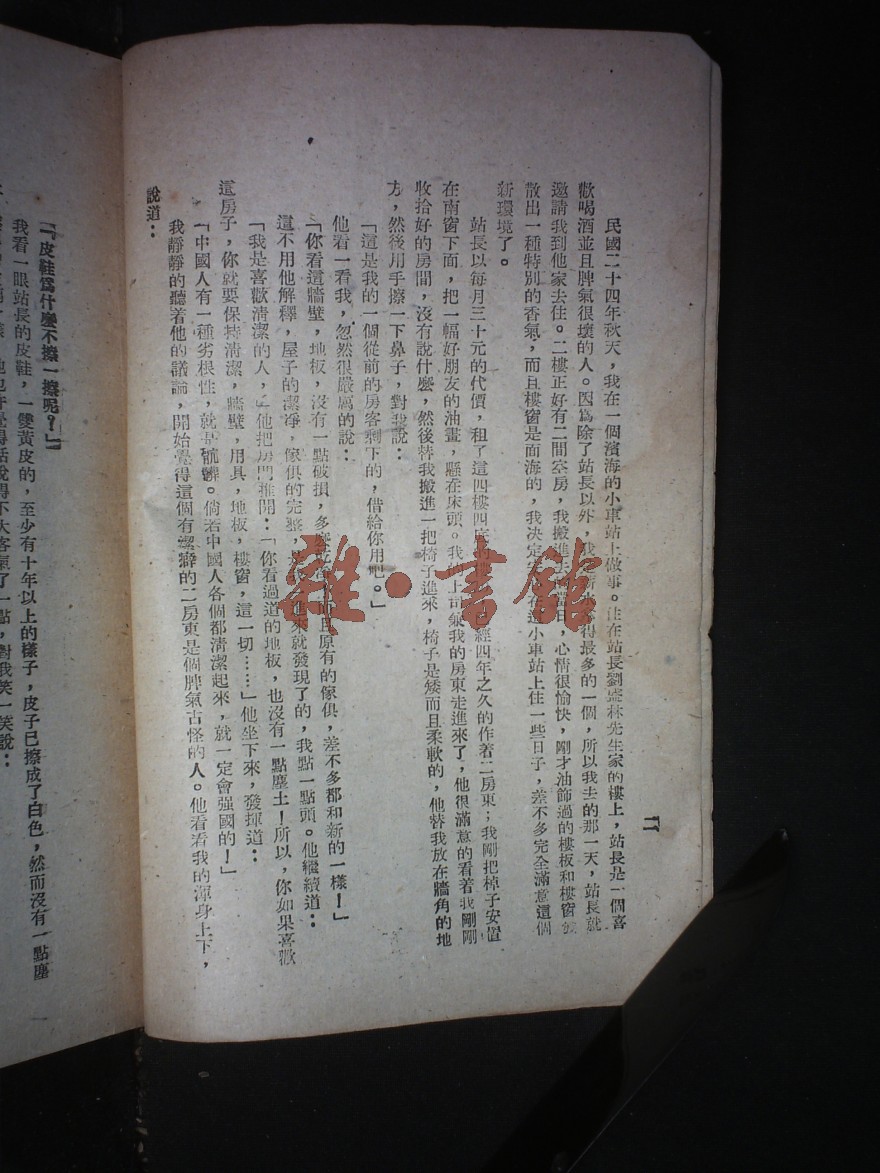 二
民國二十四年秋天，我在一個濱海的小車站上做事。住在站長劉 林先生家的樓上，站長是一個喜
歡喝酒並且脾氣很壞的人。因爲除了站長以外，我 得最多的一個，所以我去的那一天，站長就
邀請我到他家去住。二樓正好有二間空房，我搬進去 當日，心情很愉快，剛才油飾過的樓板和樓窗
散出一種特別的香氣，而且樓窗是面海的，我決定 小車站上住一些日子，差不多完全滿意這個
新環境了。
站長以每月三十元的代價，租了這四樓四底 經四年之久的作着二房東；我剛把棹子安置
在南窗下面，把一幅好朋友的油畫，懸在床頭。我的上司兼我的房東走進來了，他很滿意的看着我剛剛
收拾好的房間，沒有說什麼，然後替我搬進一把椅子進來，椅子是矮而且柔軟的，他替我放在牆角的地
方，然後用手擦一下鼻子，對我說：
「這是我的一個從前的房客剩下的，借給你用吧。」
他看一看我，忽然很嚴厲的說：
「你看這牆壁，地板，沒有一點破損，多 而且原有的傢俱，差不多都和新的一樣！」
這不用他解釋，屋子的潔凈，傢俱的完整， 進來就發現了的，我點一點頭。他繼續道：
「我是喜歡清潔的人，」他把房門推開：「你看過道的地板，也沒有一點塵土！所以，你如果喜歡
這房子，你就要保持清潔，牆壁，用具，地板，樓窗，這一切……」他坐下來，發揮道：
「中國人有一種劣根性，就是骯髒。倘若中國人各個都清潔起來，就一定會强國的！」
我靜靜的聽着他的議論，開始覺得這個有潔癖的二房東是個脾氣古怪的人。他看看我的渾身上下，
說道：
「皮鞋爲什麼不擦一擦呢？」
我看一眼站長的皮鞋，一雙黃皮的，至少有十年以上的樣子，皮子已擦成了白色，然而沒有一點塵
他也許覺得話說得不大客氣了一點，對我笑一笑說：
雜·書館